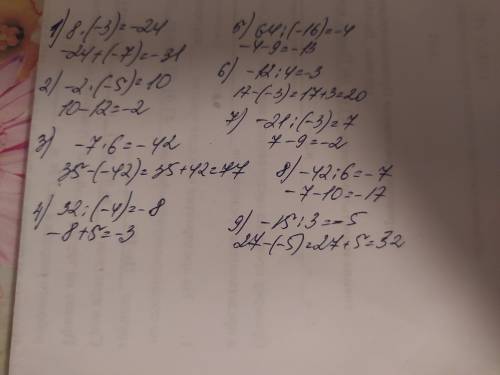 1) 8·(-3)=-24
-24+(-7)=-31
2) -2·(-5)=10
10-12=-2
3) -7·6=-42
35-(-42)=35+42=77
4) 32:(-4)=-8
-8+5=-3
5) 64:(-16)=-4
-4-9=-13
6) -12:4=-3
17-(-3)=17+3=20
7) -21:(-3)=7
7-9=-2
8) -42:6=-7
-7-10=-17
9) -15:3=-5
27-(-5)=27+5=32